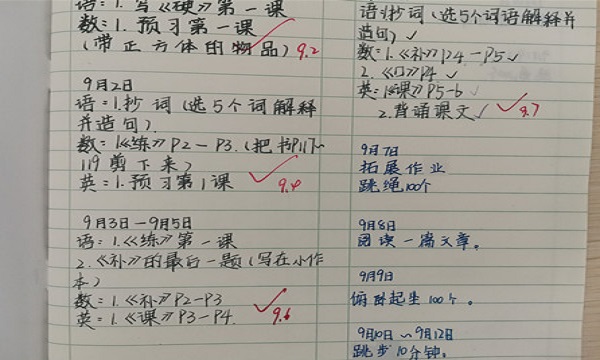 语:1.写《硬》第一课
数:1.预习第一课
(带正方体的物品) 9.2
9月2日
语:1.抄词(选5个词解释
并造句)
数:1.《练》P2-P3.(把书P117~
119剪下来)
英:1.预习第1课 9.4
9月3日-9月5日
语:1.《练》第一课
2.《补》的最后一题(写在小作
本)
数:1.《补》P2-P3
英:1.《课》P3-P4. 9.6
语:抄词(选5个词语解释并
造句)
数:1.《补》P4-P5
2.《口》P4
英:1.《课》P5-6
2.背诵课文 9.7
9月7日
拓展作业
跳绳100个
9月8日
阅读一篇文章。
9月9日
俯卧起坐100个。
9月10日~9月12日
跳步10分钟。